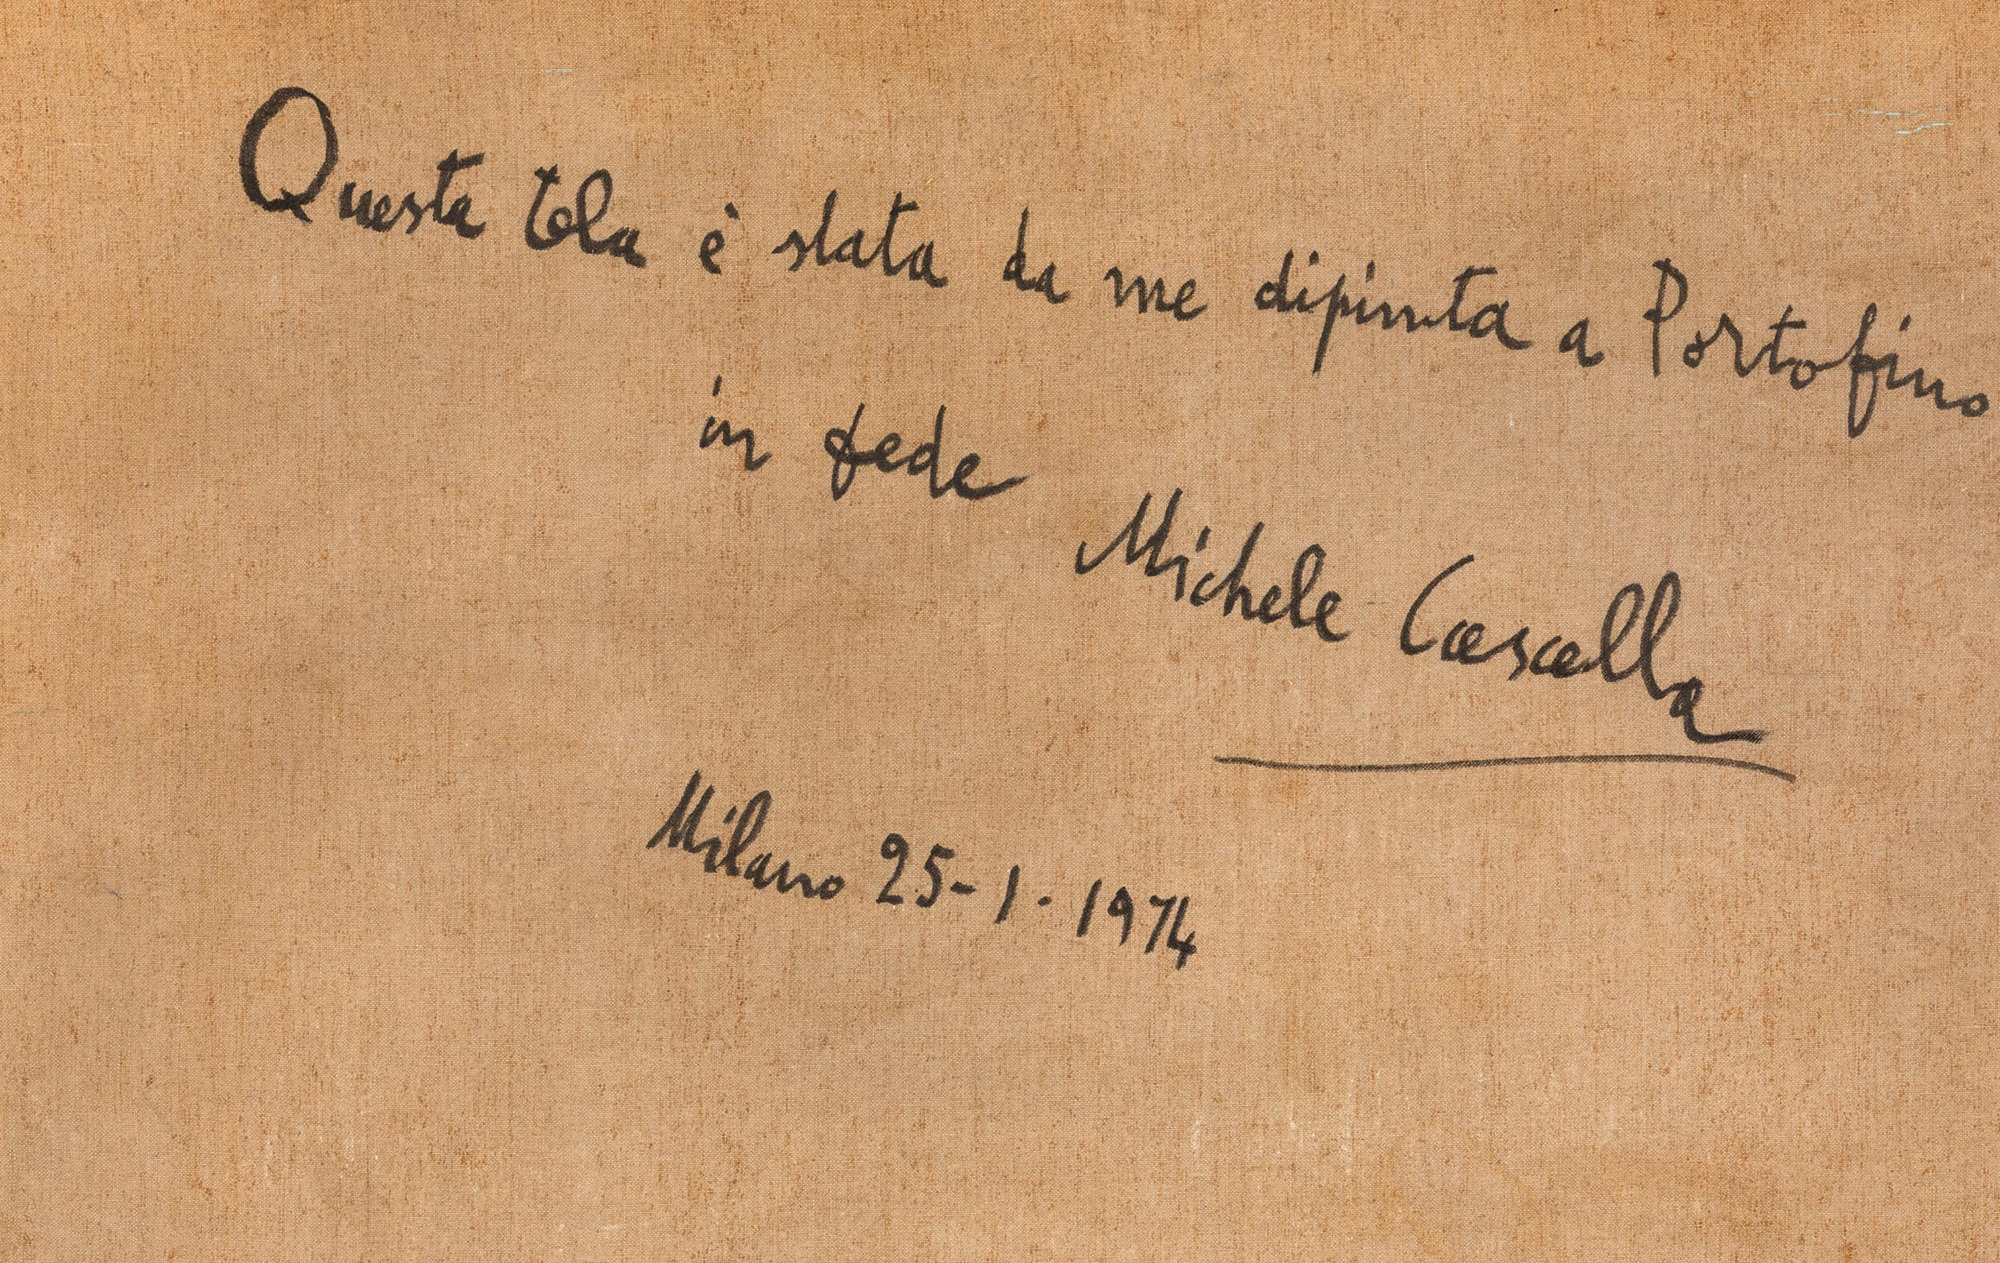 Questa tela è stata da me dipinta a Portofino
in fede
Michele Cascella
Milano 25-1-1974